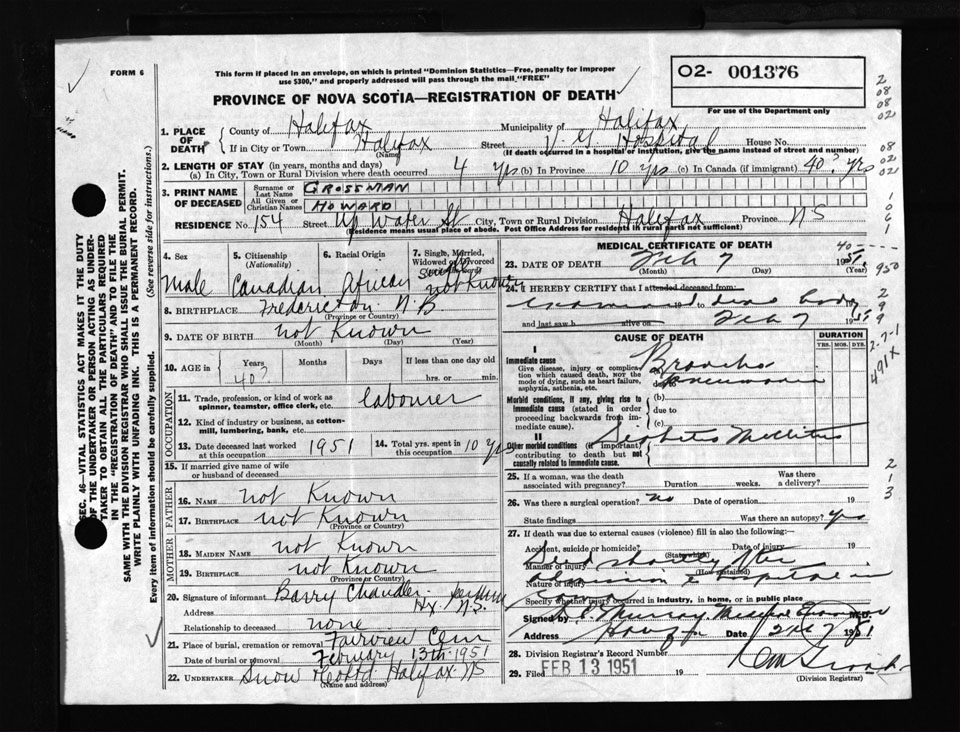 FORM 6
This form if placed in an envelope, on which is printed "Dominion Statistics—Free, penalty for improper
use $300," and properly addressed will pass through the mail "FREE"
02- 001376
For use of the Department only
PROVINCE OF NOVA SCOTIA—REGISTRATION OF DEATH
1. PLACE OF DEATH { County of Halifax Municipality of Halifax
If in City or Town Halifax (Name) Street V. G. Hospital House No.
(If death occurred in a hospital or institution, give the name instead of street and number)
2. LENGTH OF STAY (in years, months and days)
(a) In City, Town or Rural Division where death occurred 4 yrs (b) In Province 10 yrs (c) In Canada (if immigrant) 40? yrs
3. PRINT NAME OF DECEASED { Surname or Last Name GROSSMAN
All Given or Christian Names HOWARD
RESIDENCE No. 154 Street Up Water St City, Town or Rural Division Halifax Province NS
(Residence means usual place of abode. Post Office Address for residents in rural parts not sufficient)
4. Sex Male
5. Citizenship (Nationality) Canadian
6. Racial Origin African
7. Single, Married, Widowed or Divorced (write the word) not Known
8. BIRTHPLACE Fredericton N.B.
(Province or Country)
9. DATE OF BIRTH not Known
(Month) (Day) (Year)
10. AGE in { Years 40? Months Days If less than one day old
hrs. or min.
OCCUPATION
11. Trade, profession or kind of work as spinner, teamster, office clerk, etc. labourer
12. Kind of industry or business, as cotton-mill, lumbering, bank, etc.
13. Date deceased last worked at this occupation 1951
14. Total yrs. spent in this occupation 10 yrs
15. If married give name of wife or husband of deceased
FATHER
16. NAME not Known
17. BIRTHPLACE not Known
(Province or Country)
MOTHER
18. MAIDEN NAME not Known
19. BIRTHPLACE not Known
(Province or Country)
20. Signature of informant Barry Chandler
Address Hx. N.S.
Relationship to deceased none
21. Place of burial, cremation or removal Fairview Cem
Date of burial or removal February 13th 1951
22. UNDERTAKER Snow Halifax NS
(Name and address)
MEDICAL CERTIFICATE OF DEATH
23. DATE OF DEATH Feb 7 1951
(Month) (Day) (Year)
24. I HEREBY CERTIFY that I attended deceased from
examined 19 to dead body
and last saw h alive on Feb 7 1951
CAUSE OF DEATH
DURATION
YRS. MOS. DYS.
I
Immediate cause
Give disease, injury or complication which caused death, NOT the mode of dying, such as heart failure, asphyxia, asthenia, etc.
Broncho
pneumonia
Morbid conditions, if any, giving rise to immediate cause (stated in order proceeding backwards from immediate cause).
(b)
due to
(c)
II
Other morbid conditions (if important) contributing to death but not causally related to immediate cause.
Diabetes Mellitus
25. If a woman, was the death associated with pregnancy? Duration weeks. Was there a delivery?
26. Was there a surgical operation? no Date of operation 19
State findings Was there an autopsy? yes
27. If death was due to external causes (violence) fill in also the following:—
Accident, suicide or homicide? (State which) Date of injury 19
Manner of injury Died shortly after
(How sustained)
Nature of injury admission to hospital in
Specify whether injury occurred in industry, in home, or in public place
coma
Signed by Murray. Medical Examiner M.D.
Address Date 7 1951
28. Division Registrar's Record Number
29. Filed FEB 13 1951 19
(Division Registrar)
SEC. 46—VITAL STATISTICS ACT MAKES IT THE DUTY
OF THE UNDERTAKER OR PERSON ACTING AS UNDER-
TAKER TO OBTAIN ALL THE PARTICULARS REQUIRED
IN THE "REGISTRATION OF DEATH" AND TO FILE THE
SAME WITH THE DIVISION REGISTRAR WHO SHALL ISSUE THE BURIAL PERMIT.
WRITE PLAINLY WITH UNFADING INK. THIS IS A PERMANENT RECORD.
Every item of information should be carefully supplied. (See reverse side for instructions.)
2
08
08
02
08
02
02
1
0
6
1
40
950
2
9
9
2-7-1
491X
2
1
3